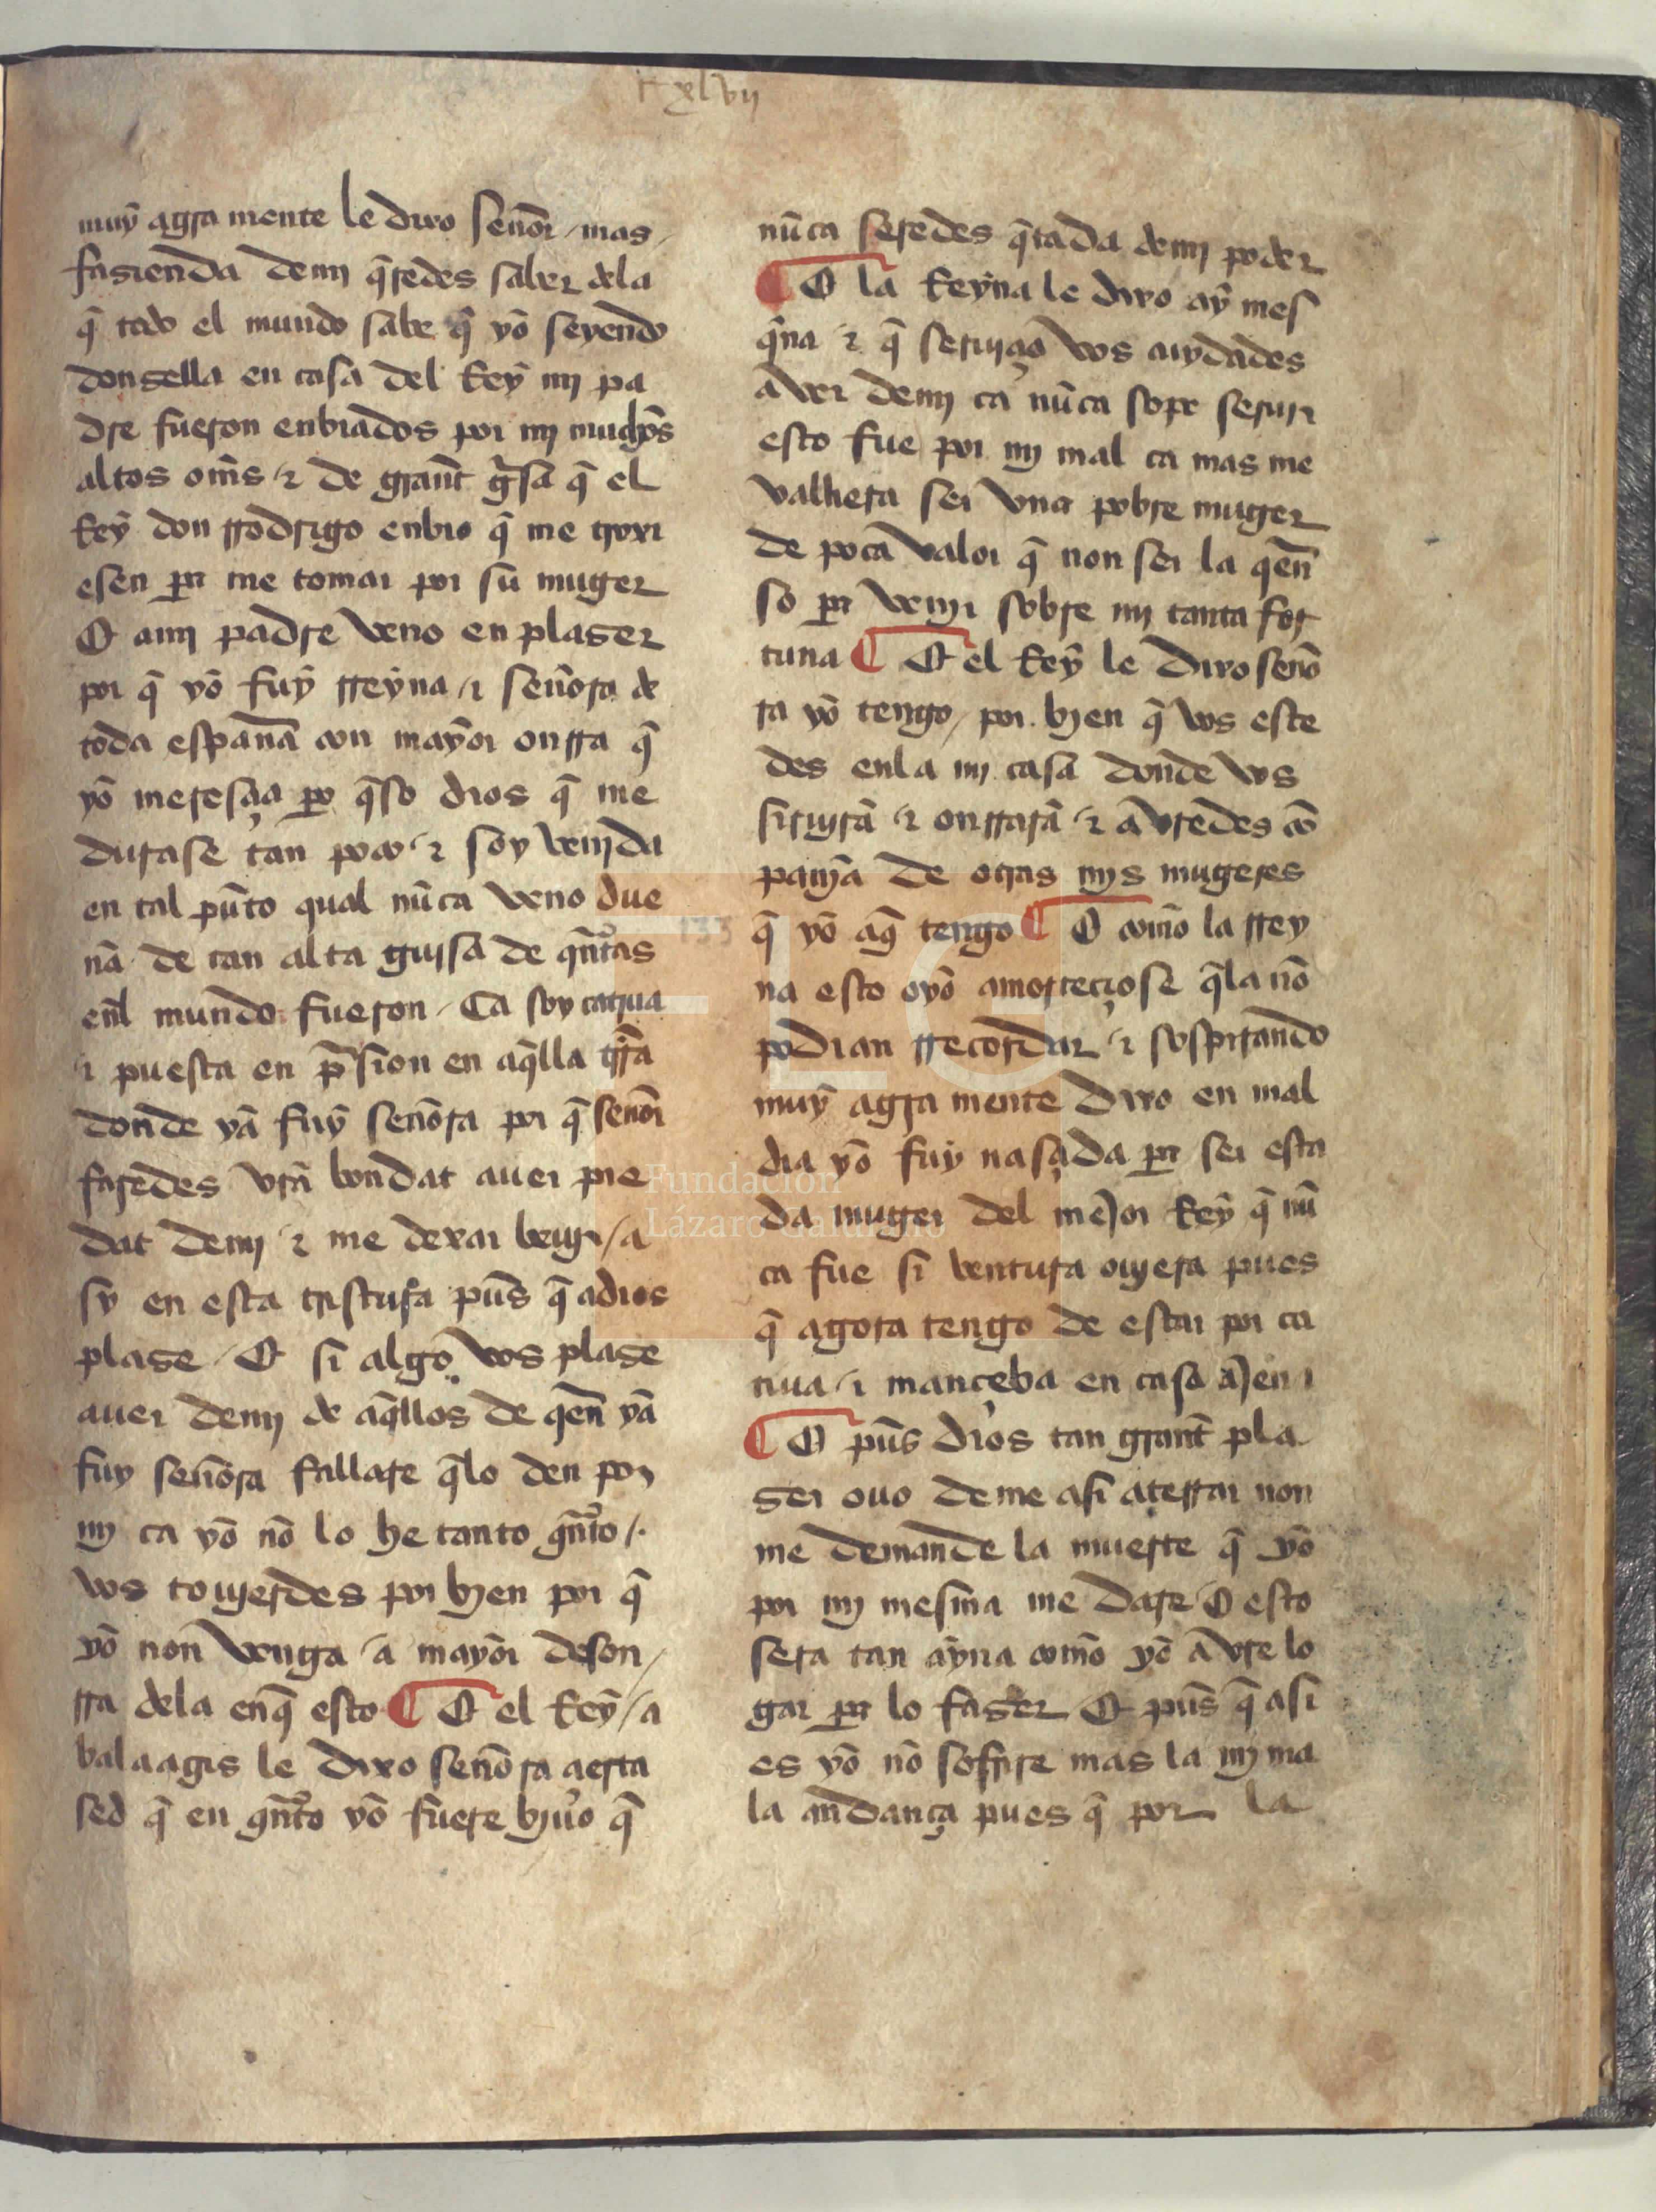 cxlvij
muỹ agra mente le dixo señor / mas /
fasienda demj q̃redes saber dela
q̃ todo el mundo sabe q̃ yõ seyendo
donsella en casa del Reỹ mj pa
dre fueron enbiados por mj muchos
altos om̃s / ⁊ de grañt gisa q̃ el
Reỹ don rrodrigo enbio q̃ me troxi
esen pa me tomar por su muger
E ami padre veno en plaser
por q̃ yõ fuỹ rreyna / ⁊ señora de
toda españa con mayõr onrra q̃
yõ meresçia pero q̃so dios q̃ me
durase tan poco / ⁊ soy venjda
en tal pũto qual nũca veno due
ña de tan alta guisa de q̃ntas
enl mundo fueron / Ca soy catiua
⁊ puesta en p̃sion en aq̃lla trr̃a
donde yã fuỹ señora por q̃ señor
faredes vr̃a bondat auer pie
dat demj / ⁊ me dexar beujr / a
sy en esta tristura pũs q̃ adios
plase / E si algo vos plase
auer demj de aq̃llos de q̃en yã
fuy señora fallare q̃lo den por
mj ca yõ nõ lo he tanto q̃nto /.
vos toujerdes por bjen por q̃
yõ non venga / a mayõr deson /
rra dela enq̃ esto ¶ E el Reỹ / a
balaagis le dixo señora aerta
sed q̃ en q̃nto yõ fuere bjuo q̃
nũca seredes q̃tada demj poder
¶ E la Reỹna le dixo aỹ mes
q̃na ⁊ q̃ seruiçio vos cuydades
aver demj ca nũca sope seruir
esto fue por mj mal ca mas me
valliera ser vna pobre muger
de poca valor q̃ non ser la q̃en
so pa venjr sobre mj tanta for
tuna ¶ E el Reỹ le dixo seño
ra yõ tengo / por bjen q̃ vos este
des enla mj casa donde vos
siruirã ⁊ onrrarã ⁊ avredes cõ
panja de otras mjs mugeres
q̃ yõ aq̃ tengo ¶ E como la rrey
133
na esto oyõ amorteçiose q̃la nõ
podian rrecordar / ⁊ sospirando
muỹ agra mente dixo en mal
dia yõ fuy nasçida pa ser esta
da muger del mejor Reỹ q̃ nũ
ca fue si ventura oujera pues
q̃ agora tengo de estar por ca
tiua / ⁊ mançeba en casa ajena
¶ E pũs dios tan grañt pla
ser ouo deme asi aterrar non
me demande la muerte q̃ yõ
por mj mesma me dare E esto
sera tan aỹna como yõ avre lo
gar pa lo faser E pũs q̃ asi
es yõ nõ sofrire mas la mj ma
la andança pues q̃ por la
FLG
Fundación
Lázaro Galdiano